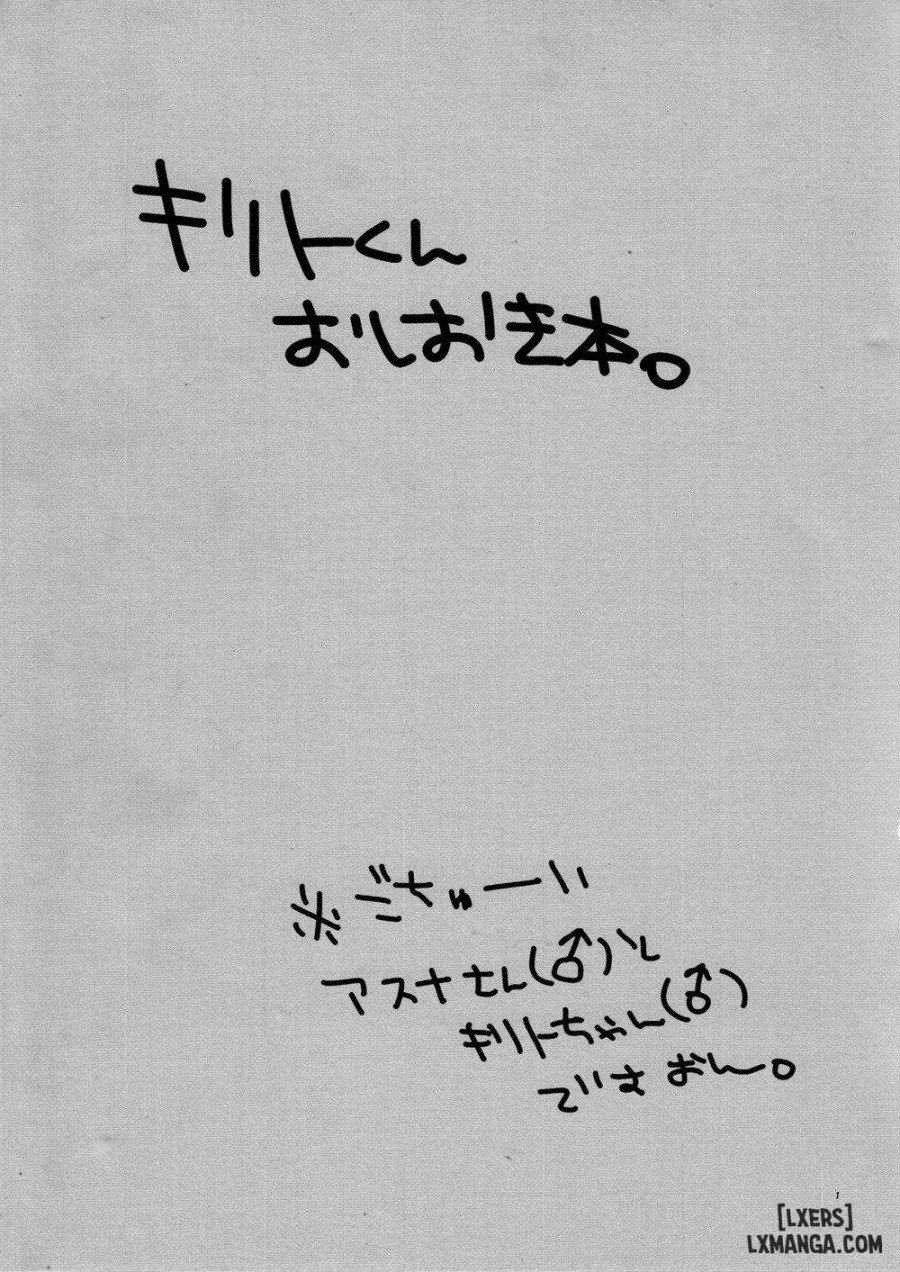 キリトくん
おしおき本。
※ごちゅーい
アスナさん(♂)と
キリトちゃん(♂)
1
[LXERS]
LXMANGA.COM